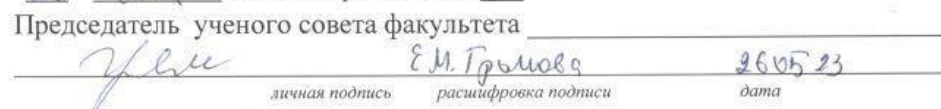 Председатель ученого совета факультета
Е.М. Громова 26 05 23
личная подпись расшифровка подписи дата